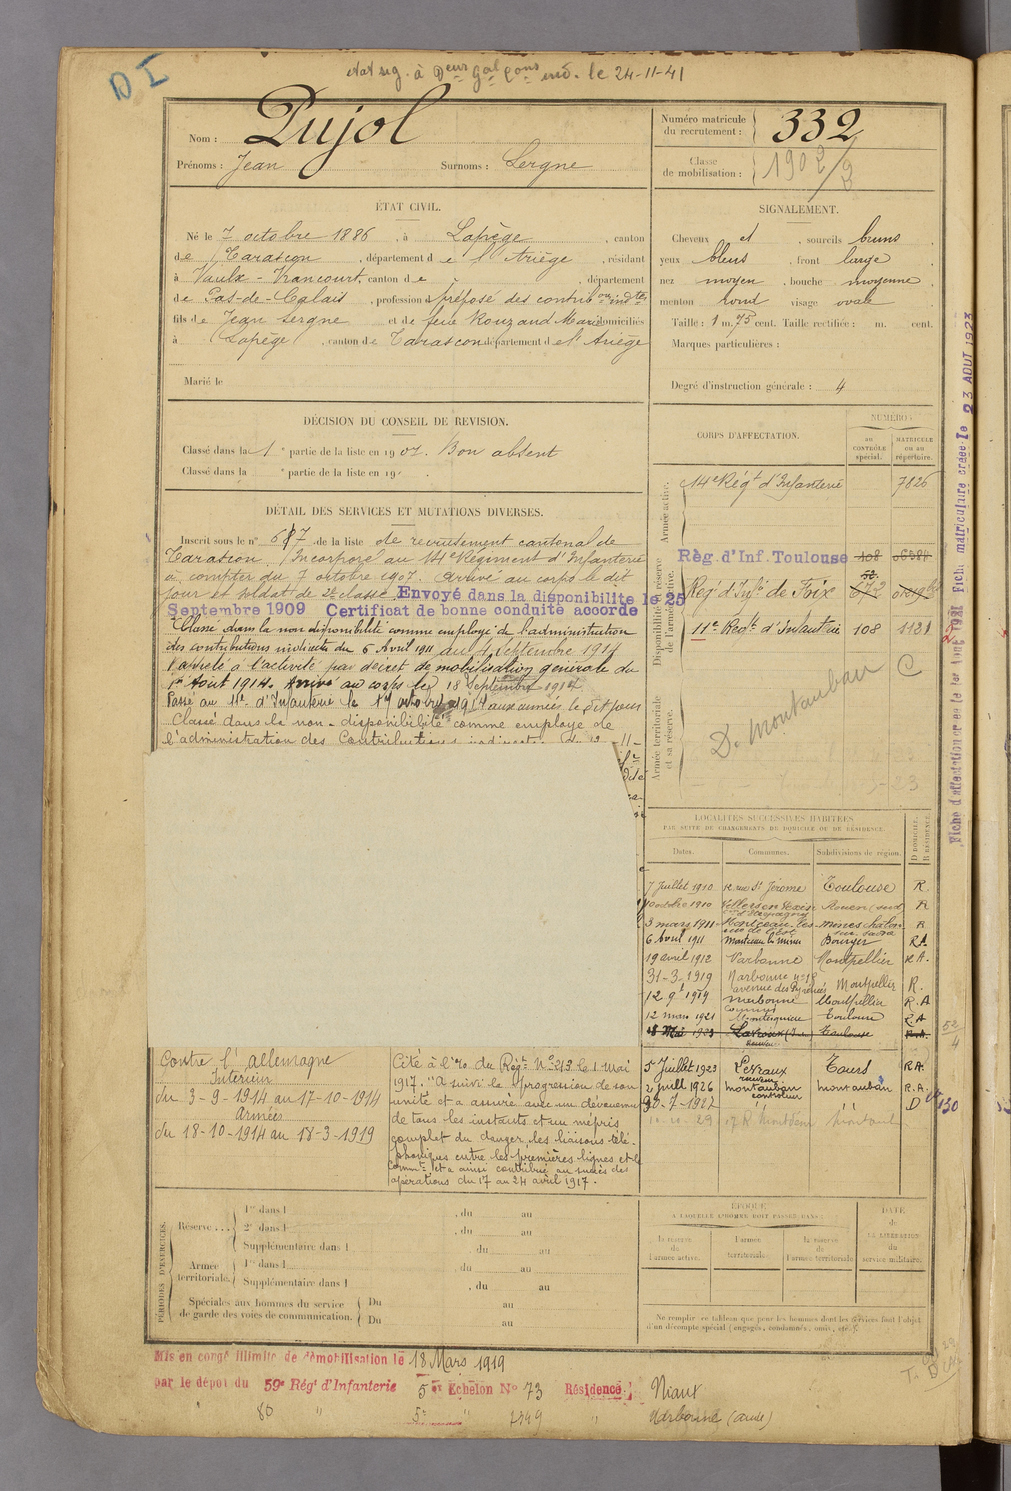 D I
à Deux Garçons le 24-11-41
Nom : Pujol
Prénoms : Jean Surnoms : Sergne
Numéro matricule du recrutement : 332
Classe de mobilisation : 1902
ÉTAT CIVIL.
Né le 7 octobre 1886, à Lapège, canton
de Tarascon, département de l'Ariège, résidant
à Vaulx-Vrancourt, canton de , département
de Pas-de-Calais, profession d préposé des contribons indtes
fils de Jean Sergne et de feue Rouzaud Marie domiciliés
à Lapège, canton de Tarascon département de l'Ariège
Marié le
SIGNALEMENT.
Cheveux et , sourcils bruns
yeux bleus , front large
nez moyen , bouche moyenne
menton rond visage ovale
Taille : 1 m. 75 cent. Taille rectifiée : m. cent.
Marques particulières :
Degré d'instruction générale : 4
DÉCISION DU CONSEIL DE REVISION.
Classé dans la 1e partie de la liste en 1907. Bon absent
Classé dans la e partie de la liste en 19
DÉTAIL DES SERVICES ET MUTATIONS DIVERSES.
Inscrit sous le n° 687 de la liste de recrutement cantonal de
Tarascon. Incorporé au 14e Régiment d'Infanterie
à compter du 7 octobre 1907. Arrivé au corps le dit
jour et soldat de 2e classe. Envoyé dans la disponibilité le 25
Septembre 1909 Certificat de bonne conduite accordé
Classé dans la non disponibilité comme employé de l'administration
des contributions indirectes du 6 Avril 1911 au 1 Septembre 1914
Rappelé à l'activité par décret de mobilisation générale du
1er Août 1914. Arrivé au corps le 18 Septembre 1914
Passé au 11e d'Infanterie le 17 octobre 1914 aux armées le dit jour
Classé dans la non-disponibilité comme employé de
l'administration des Contributions
CORPS D'AFFECTATION.
NUMÉROS
AU CONTRÔLE spécial.
MATRICULE ou au répertoire.
Armée active.
14e Régt d'Infanterie 7826
Disponibilité et réserve de l'armée active.
Règ. d'Inf. Toulouse 108
Régt d'Infie de Foix 672
11e Regt d'Infanterie 108 1181
Armée territoriale et sa réserve.
D. Montauban C
Fiche matriculaire créée le 23 AOUT 1923
LOCALITÉS SUCCESSIVES HABITÉES
PAR SUITE DE CHANGEMENTS DE DOMICILE OU DE RÉSIDENCE.
Dates. Communes. Subdivisions de région. D DOMICILE. R RÉSIDENCE.
7 Juillet 1910 12 rue St Jérome Toulouse R.
octobre 1910 Rouen (sud R
3 mars 1911 Montceau-les-mines chalon sur Saône R
6 Avril 1911 Montceau les mines Bourges RA
19 avril 1912 Narbonne Montpellier R.A.
31-3-1919 Narbonne avenue des Pyrénées Montpellier R.
12 9t 1919 Narbonne Montpellier R.A
12 mars 1921 Toulouse R.A
18 Mai 1923 Toulouse R.A.
5 Juillet 1923 Levroux receveur Tours R.A.
2 juill 1926 montauban controleur montauban R.A.
20-7-1927 " " D
52/4
130
Contre l'Allemagne
Intérieur
du 3-9-1914 au 17-10-1914
Armées
du 18-10-1914 au 18-3-1919
Cité à l'o. du Régt No 213 le 1 Mai
1917. "A suivi la progression de son
unité et a assuré avec un dévouement
de tous les instants et un mépris
complet du danger, les liaisons télé-
phoniques entre les premières lignes et le
Commt et a ainsi contribué au succès des
opérations du 17 au 24 avril 1917.
PÉRIODES D'EXERCICES.
Réserve . . . 1re dans l , du au
2e dans l , du au
Supplémentaire dans l du au
Armée territoriale. 1re dans l , du au
Supplémentaire dans l , du au
Spéciales aux hommes du service de garde des voies de communication. Du au
Du au
ÉPOQUE
À LAQUELLE L'HOMME DOIT PASSER DANS :
la réserve de l'armée active.
l'armée territoriale.
la réserve de l'armée territoriale.
DATE de LA LIBÉRATION du service militaire.
Ne remplir ce tableau que pour les hommes dont les services font l'objet
d'un décompte spécial (engagés, condamnés, omis, etc.).
Mis en congé illimité de démobilisation le 18 Mars 1919
par le dépôt du 59e Régt d'Infanterie 5e Echelon No 73 Résidence : Niaux
" 80 " 5e " 7349 " Narbonne (aude)